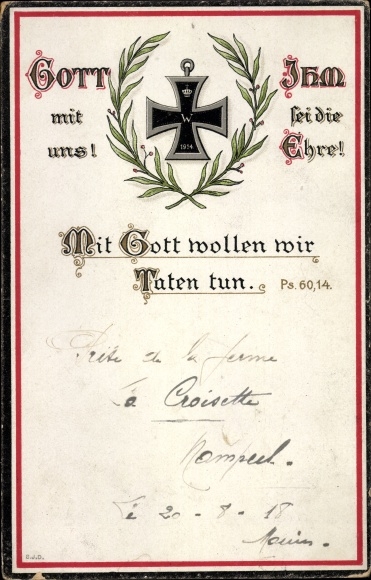 Gott
mit
uns!
Ihm
sei die
Ehre!
W
1914
Mit Gott wollen wir
Taten tun. Ps. 60,14.
Prise de la ferme
la Croisette
Le 20-8-18